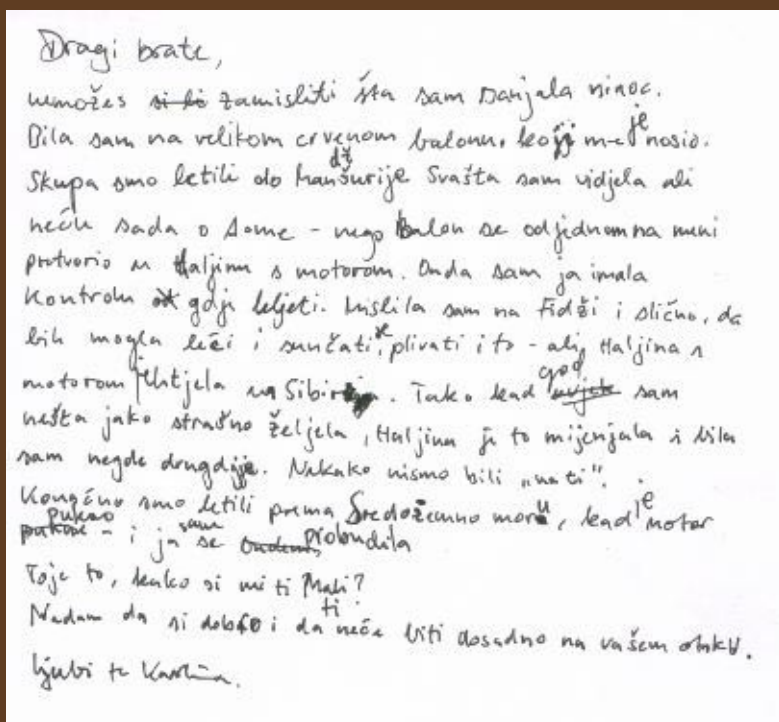 Dragi brate,
nemožes zamisliti šta sam sanjala sinoc.
Bila sam na velikom crvenom balonu, koji me je nosio.
Skupa smo letili do Mandžurije Svašta sam vidjela ali
neću sada o tome - nego balon se odjednom na meni
pretvorio u Haljinu s motorom. Onda sam ja imala
Kontrolu gdje leljeti. Mislila sam na Fidži i slično, da
bih mogla leći i sunčati se, plivati i to - ali Haljina s
motorom je htjela na Sibir. Tako kad god sam
nešta jako strašno željela, Haljina je to mijenjala i bila
sam negde drugdje. Nikako nismo bili „na ti".
Konačno smo letili prema Sredozemno moru, kad je motor
pukao - i ja sam se probudila
To je to, kako si mi ti Mali?
Nadam da si dobro i da ti neće biti dosadno na vašem otoku.
ljubi te Karolina.